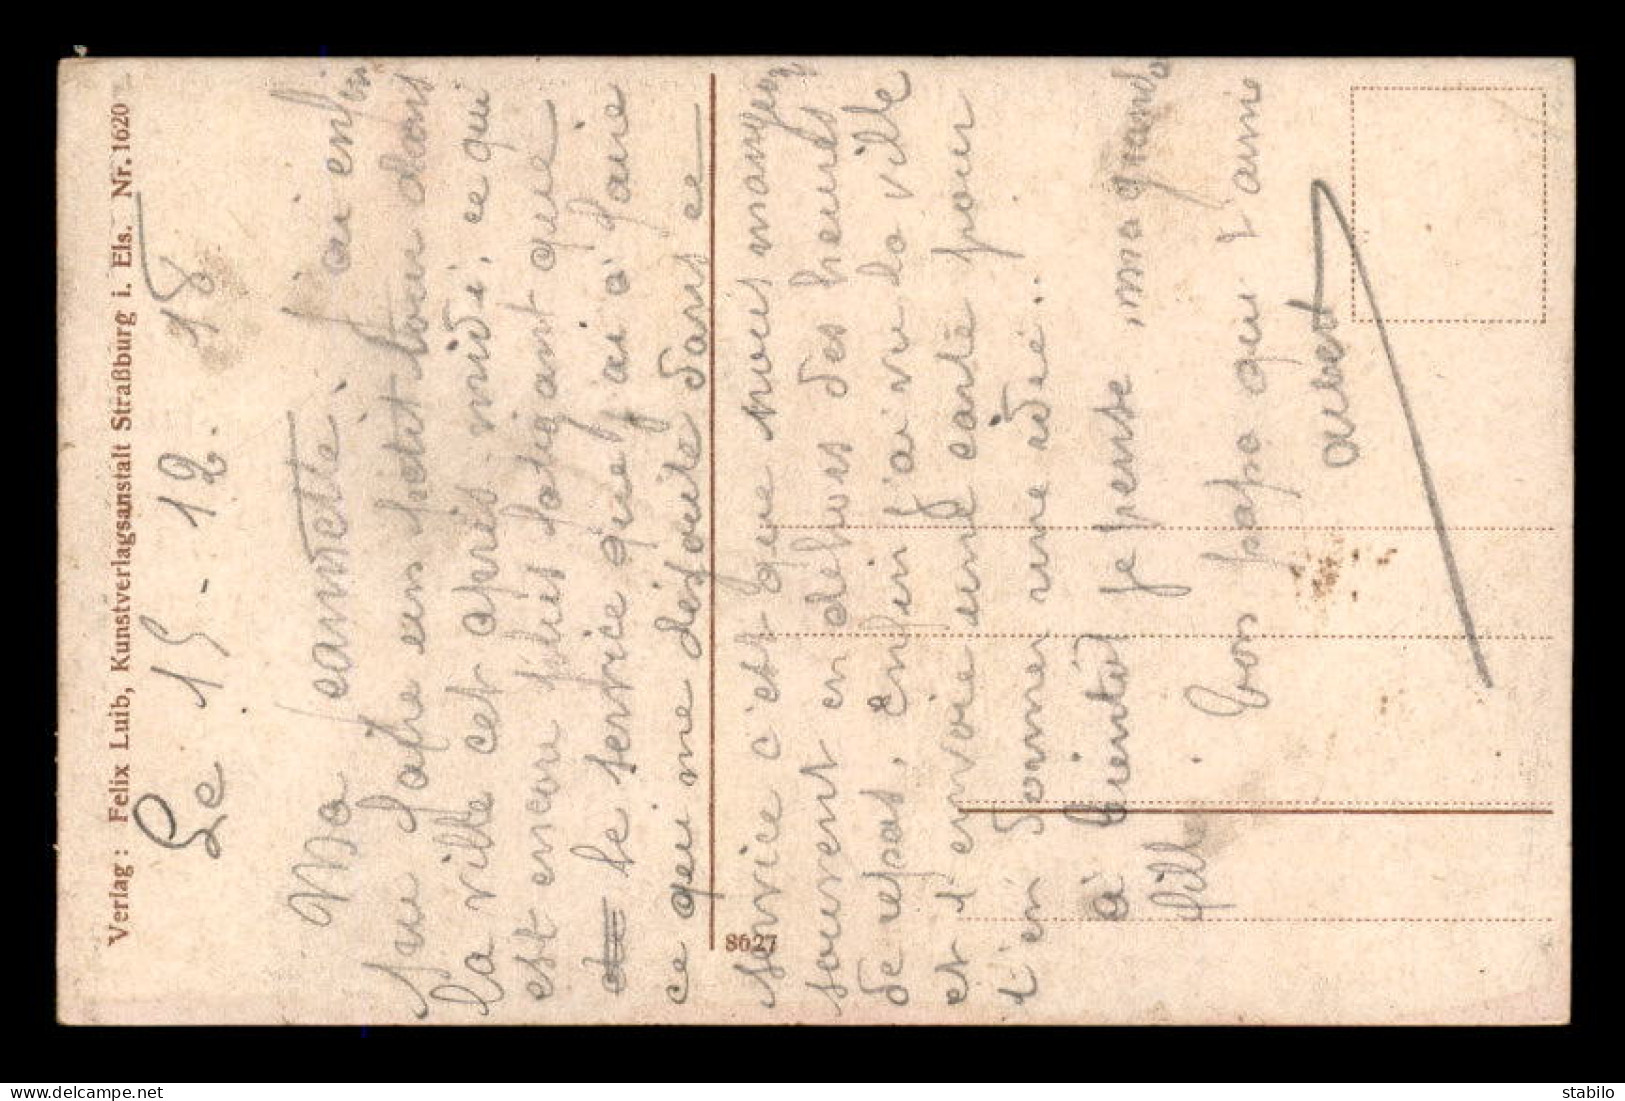 Verlag: Felix Luib, Kunstverlagsanstalt Straßburg i. Els. Nr. 1620
Le 15-12. 18
Ma Jannette. J'ai enfin
pu faire un petit tour dans
la ville cet après midi, ce qui
est encore plus fatigant que
le service que j'ai à faire
ce qui me dégoute dans ce
service c'est que nous mangeon
souvent en dehors des heures
de repas, enfin j'ai vu la ville
et t'envoie une carte pour
t'en donner une idée..
à bientôt je pense, ma grande
fille
Ton papa qui t'aime
Albert
8627
stabilo